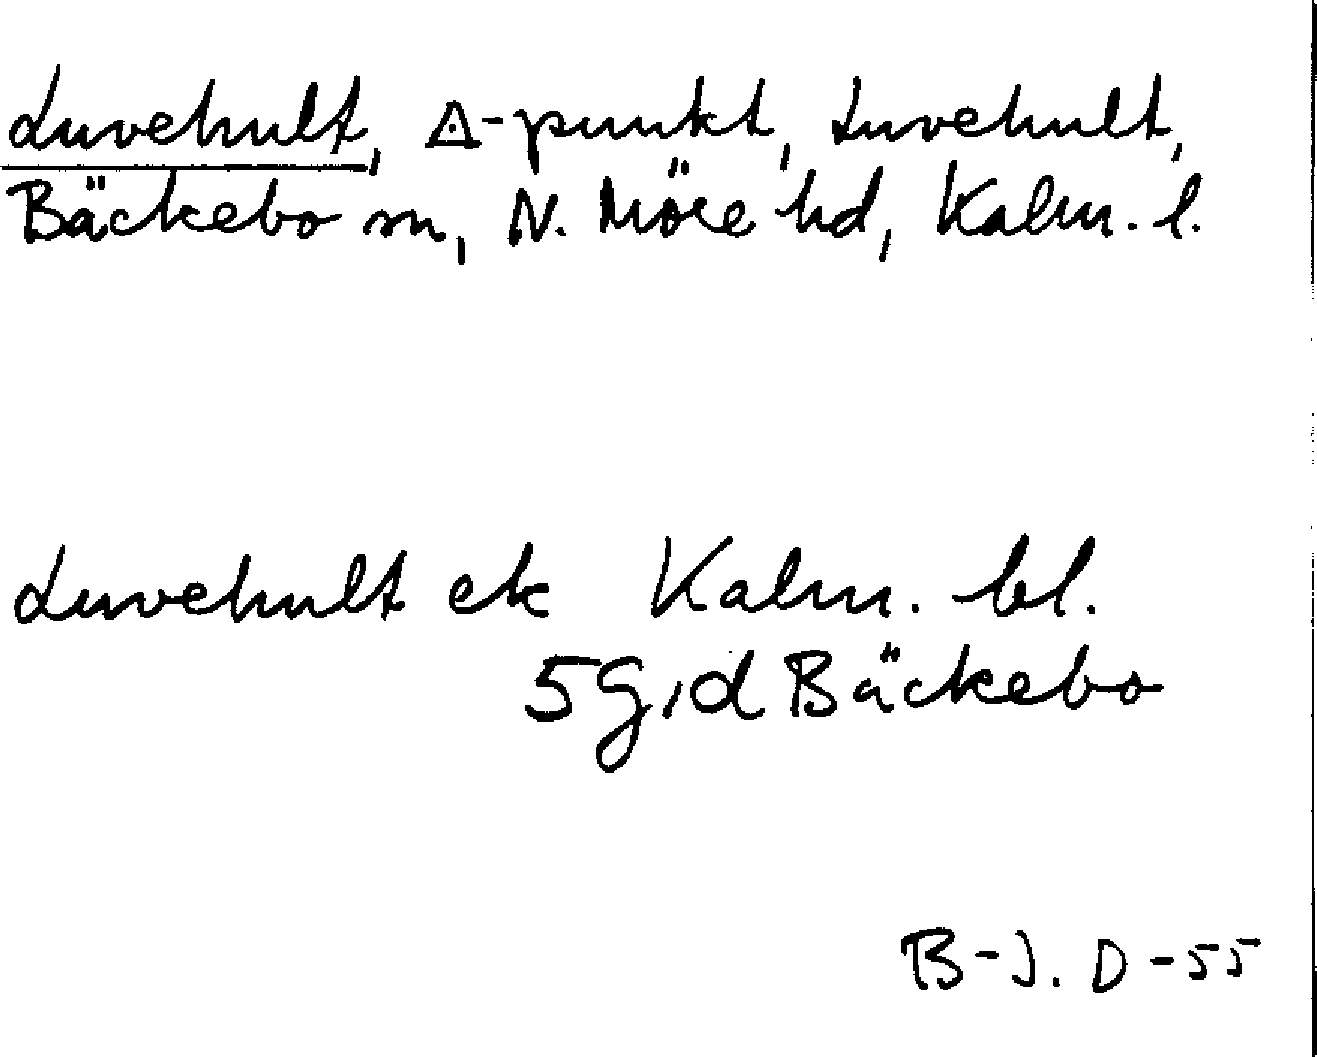 Luvehult, ◬-punkt, Luvehult,
Bäckebo sn, N. Möre hd, Kalm. l.
Luvehult ek Kalm. bl.
5G,d Bäckebo
B-J. D-55